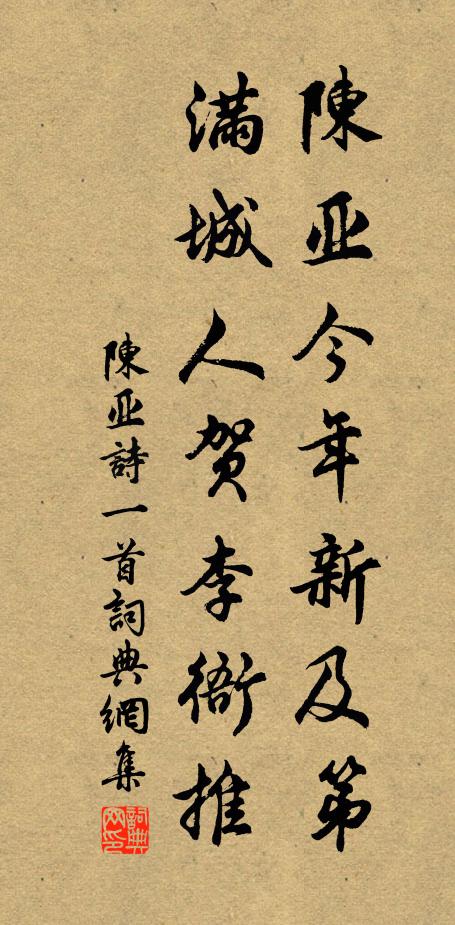 陳亚今年新及第
滿城人贺李衙推
陳亚詩一首詞典網集
詞典網印